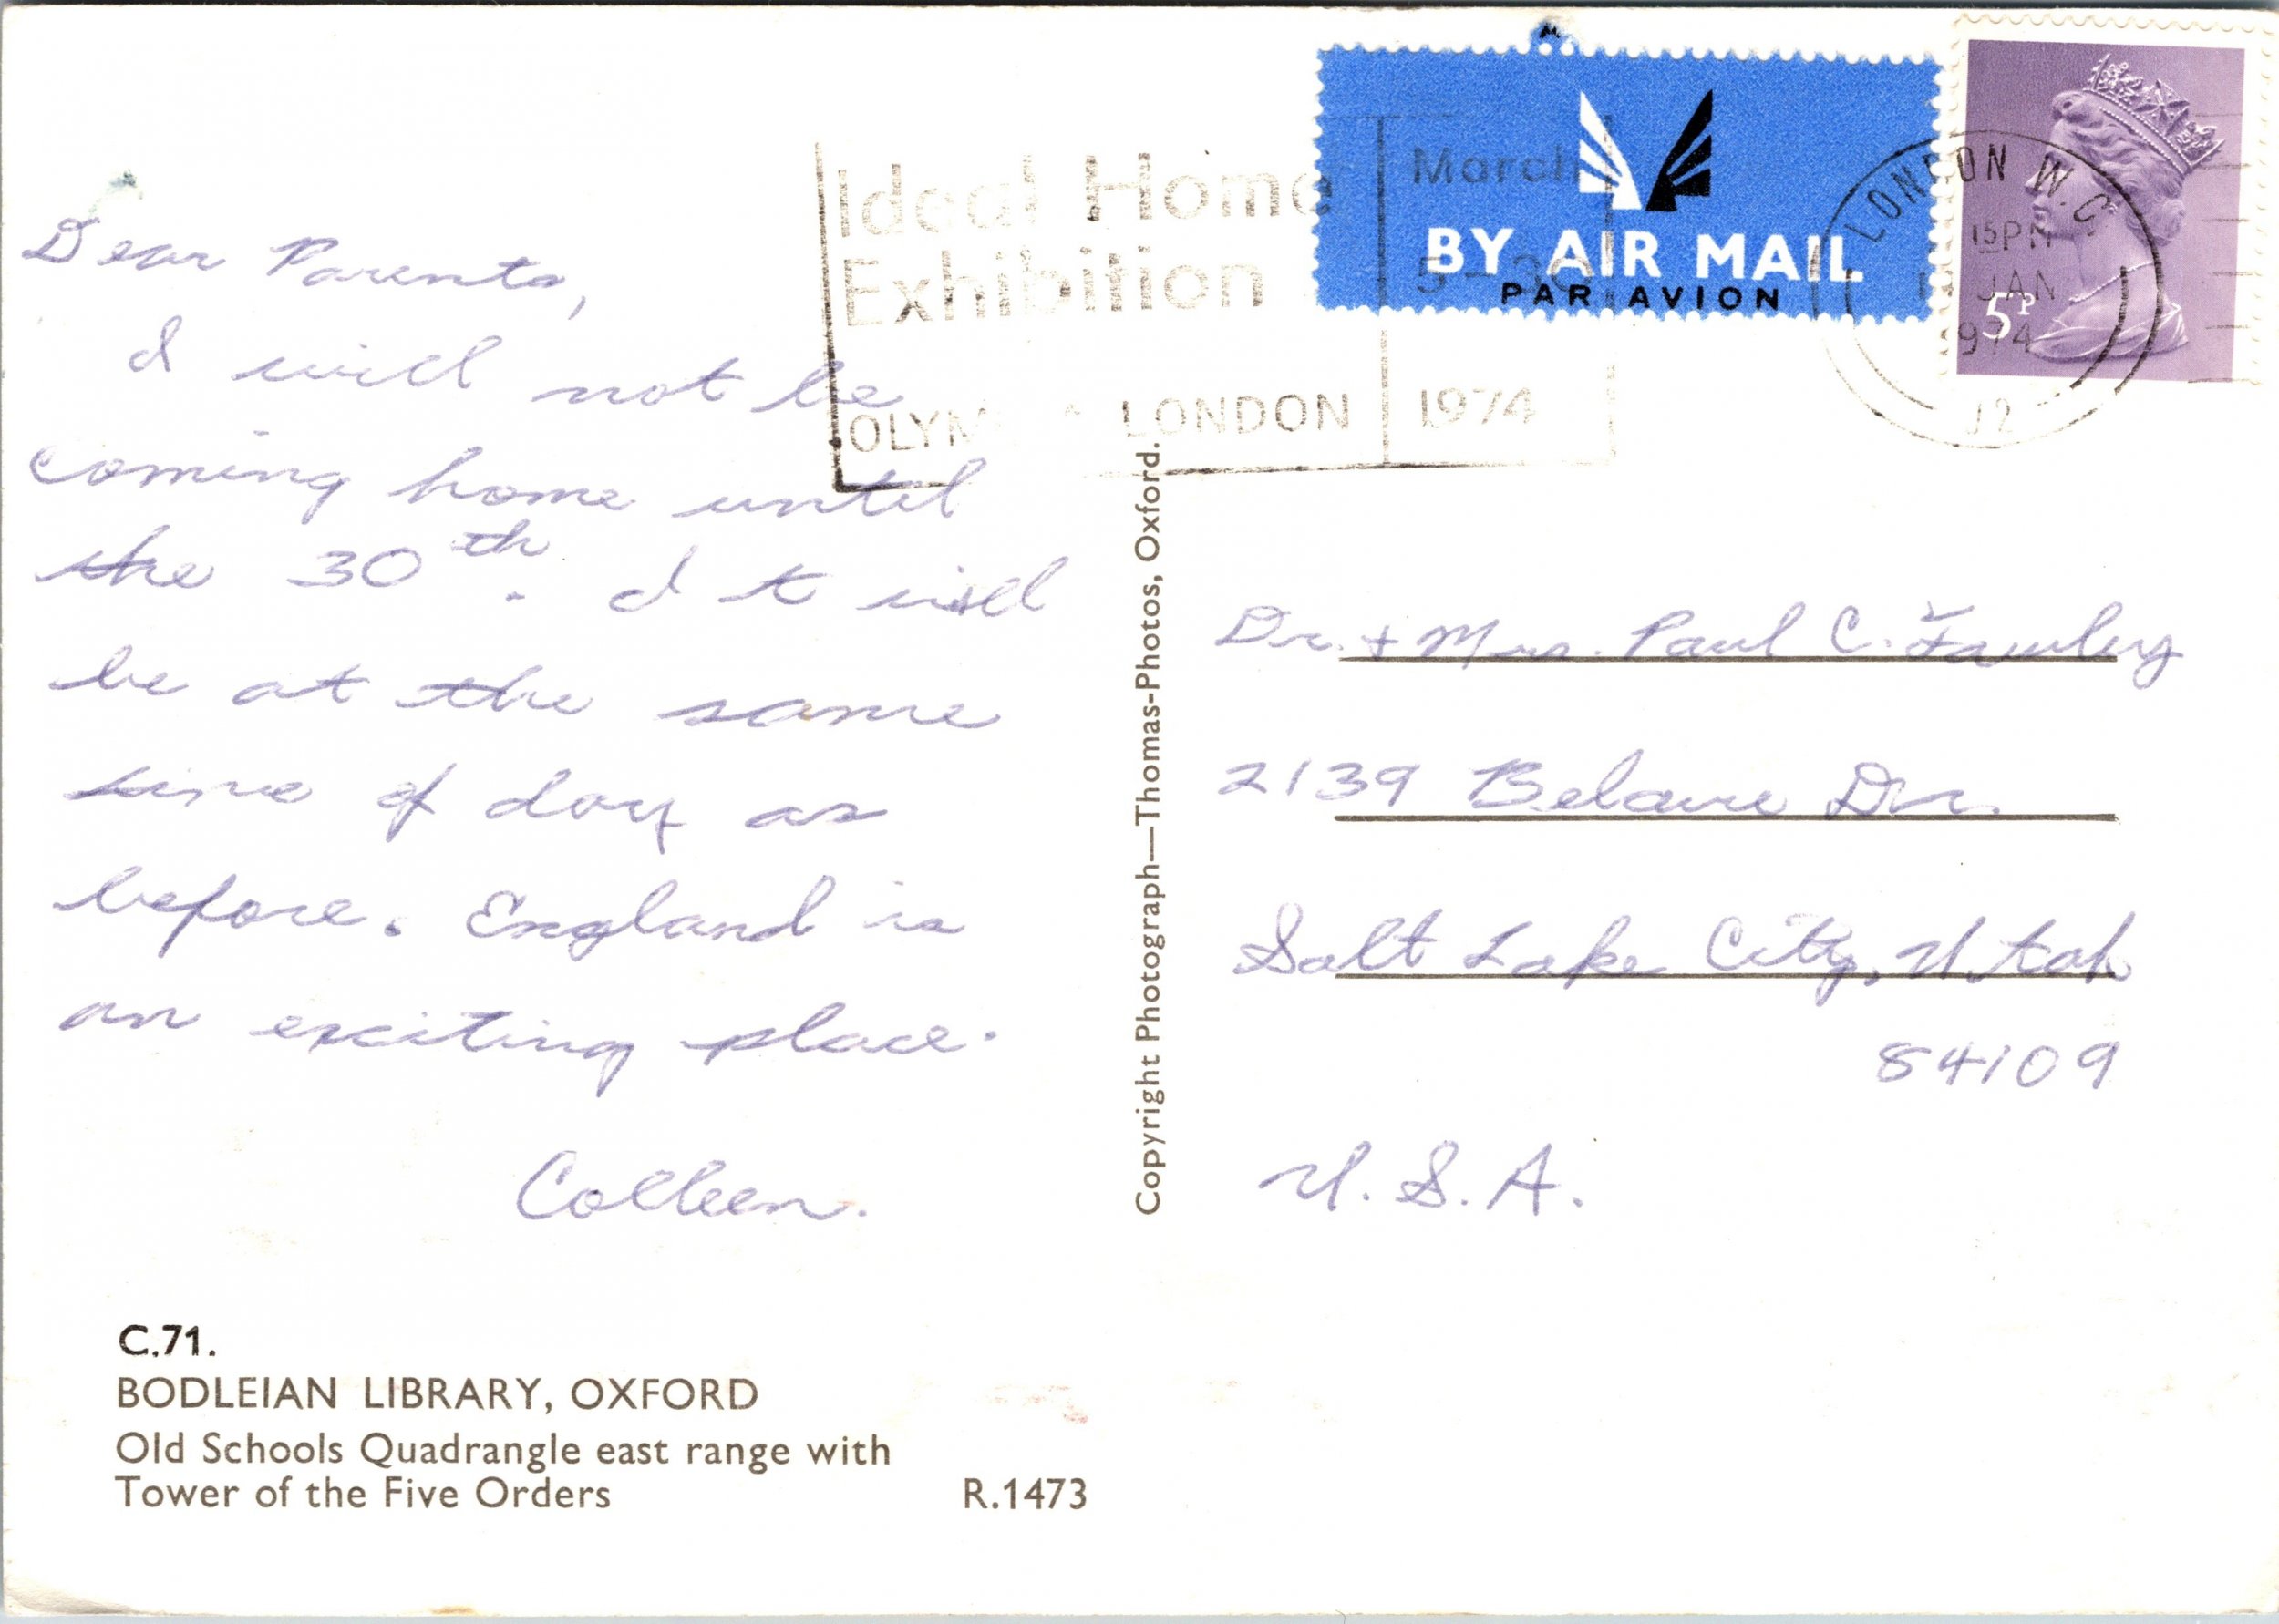 Dear Parents,
I will not be
coming home until
the 30th. It will
be at the same
time of day as
before. England is
an exciting place.
Colleen.
C.71.
BODLEIAN LIBRARY, OXFORD
Old Schools Quadrangle east range with
Tower of the Five Orders R.1473
Copyright Photograph—Thomas-Photos, Oxford.
Ideal Home
Exhibition
LONDON
March
5-30
1974
BY AIR MAIL
PAR AVION
LONDON W.C
15PM
JAN
1974
5P
Dr. + Mrs. Paul C. Fawley
2139 Belaire Dr.
Salt Lake City, Utah
84109
U.S.A.